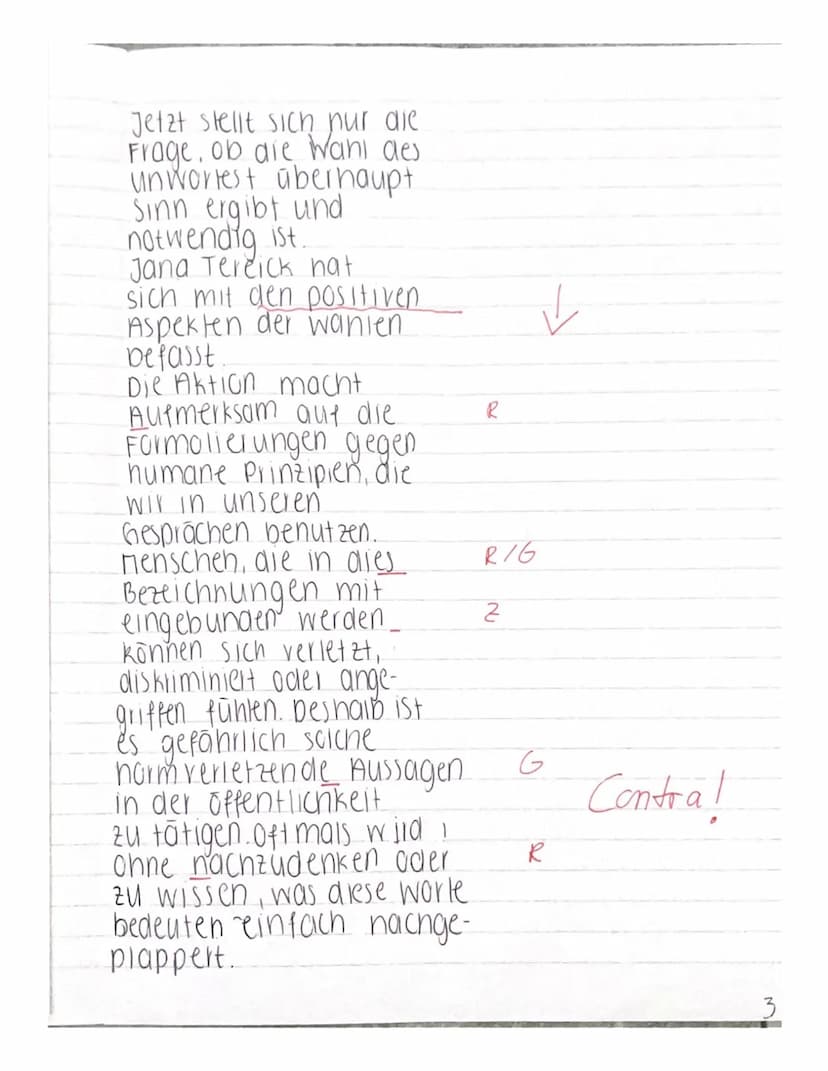 Jetzt stellt sich nur die
Frage, ob die Wahl des
unWortest überhaupt
Sinn ergibt und
notwendig ist.
Jana Tereick hat
sich mit den positiven
Aspekten der Wahlen
befasst.
Die Aktion macht
Aufmerksam auf die R
Formolierungen gegen
humane Prinzipien, die
wir in unseren
Gesprächen benutzen.
Menschen, die in dies R/G
Bezeichnungen mit
eingebunden werden Z
können sich verletzt,
diskriminiert oder ange-
griffen fühlen. Deshalb ist
es gefährlich solche
normverletzende Aussagen G
in der Öffentlichkeit Contra!
zu tätigen. Oftmals wird,
ohne nachzudenken oder R
zu wissen, was diese Worte
bedeuten einfach nachge-
plappert.
3